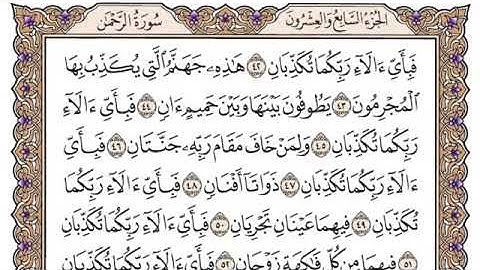 الجزء السابع والعشرون
سورة الرحمن
فَبِأَيِّ ءَالَآءِ رَبِّكُمَا تُكَذِّبَانِ ٤٢ هَٰذِهِۦ جَهَنَّمُ ٱلَّتِي يُكَذِّبُ بِهَا
ٱلْمُجْرِمُونَ ٤٣ يَطُوفُونَ بَيْنَهَا وَبَيْنَ حَمِيمٍ ءَانٍ ٤٤ فَبِأَيِّ ءَالَآءِ
رَبِّكُمَا تُكَذِّبَانِ ٤٥ وَلِمَنْ خَافَ مَقَامَ رَبِّهِۦ جَنَّتَانِ ٤٦ فَبِأَيِّ
ءَالَآءِ رَبِّكُمَا تُكَذِّبَانِ ٤٧ ذَوَاتَآ أَفْنَانٍ ٤٨ فَبِأَيِّ ءَالَآءِ رَبِّكُمَا
تُكَذِّبَانِ ٤٩ فِيهِمَا عَيْنَانِ تَجْرِيَانِ ٥٠ فَبِأَيِّ ءَالَآءِ رَبِّكُمَا تُكَذِّبَانِ
٥١ فِيهِمَا مِن كُلِّ فَٰكِهَةٍ زَوْجَانِ ٥٢ فَبِأَيِّ ءَالَآءِ رَبِّكُمَا تُكَذِّبَانِ